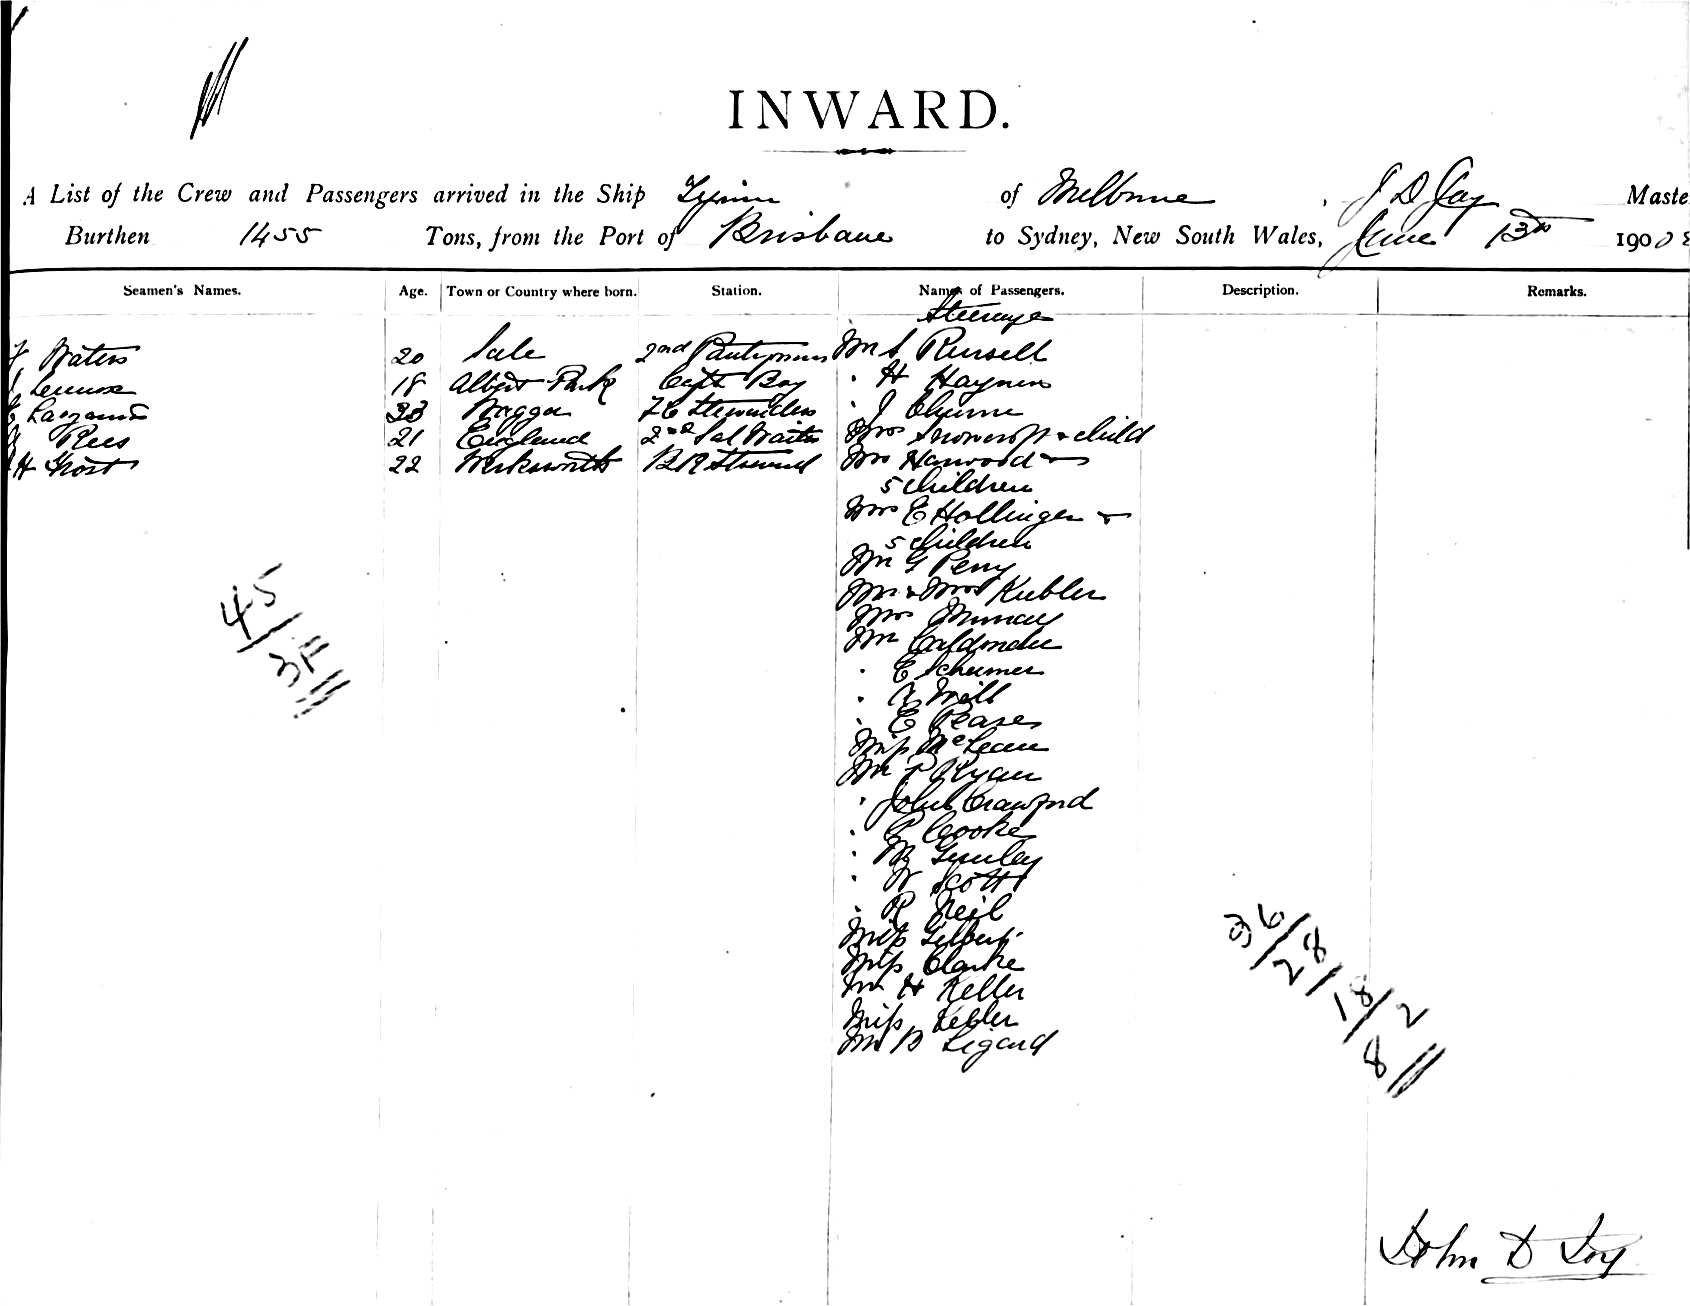 INWARD.
A List of the Crew and Passengers arrived in the Ship of Melbourne, J D Joy Maste
Burthen 1455 Tons, from the Port of Brisbane to Sydney, New South Wales, June 13th 1908
Seamen's Names. Age. Town or Country where born. Station. Names of Passengers. Description. Remarks.
Steerage
Waters 20 Sale 2nd Pantryman Mr S Russell
Lennox 18 Albert Park Capts Boy " H Haynes
23 Wagga F C Stewardess " J
Rees 21 England 2nd Sal Waiter Mrs Snowcroft & child
H Frost 22 Wirksworth B R Steward Mrs Harwood &
5 children
Mrs E Hollinger &
5 children
Mr G Perry
Mr & Mrs Kubler
Mrs Murray
Mr
" E
"
" E Pease
Miss McLean
Mr P Ryan
" John Crawford
" Cooke
" Gourley
" W Scott
" R Neil
Miss Gilbert
Miss Clarke
Mr H Keller
Miss Keller
Mr B Ligard
45
3F
36/28/18/2
8
John D Joy